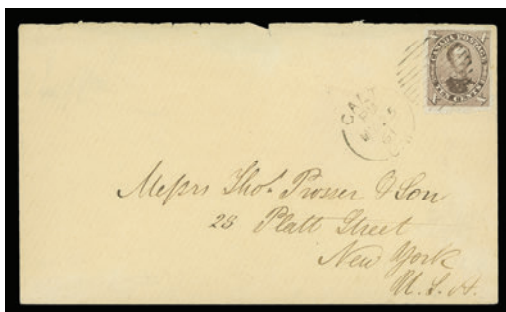 CANADA POSTAGE
TEN CENTS
Messrs Thos. Prosser & Son
28 Platt Street
New York
U. S. A.